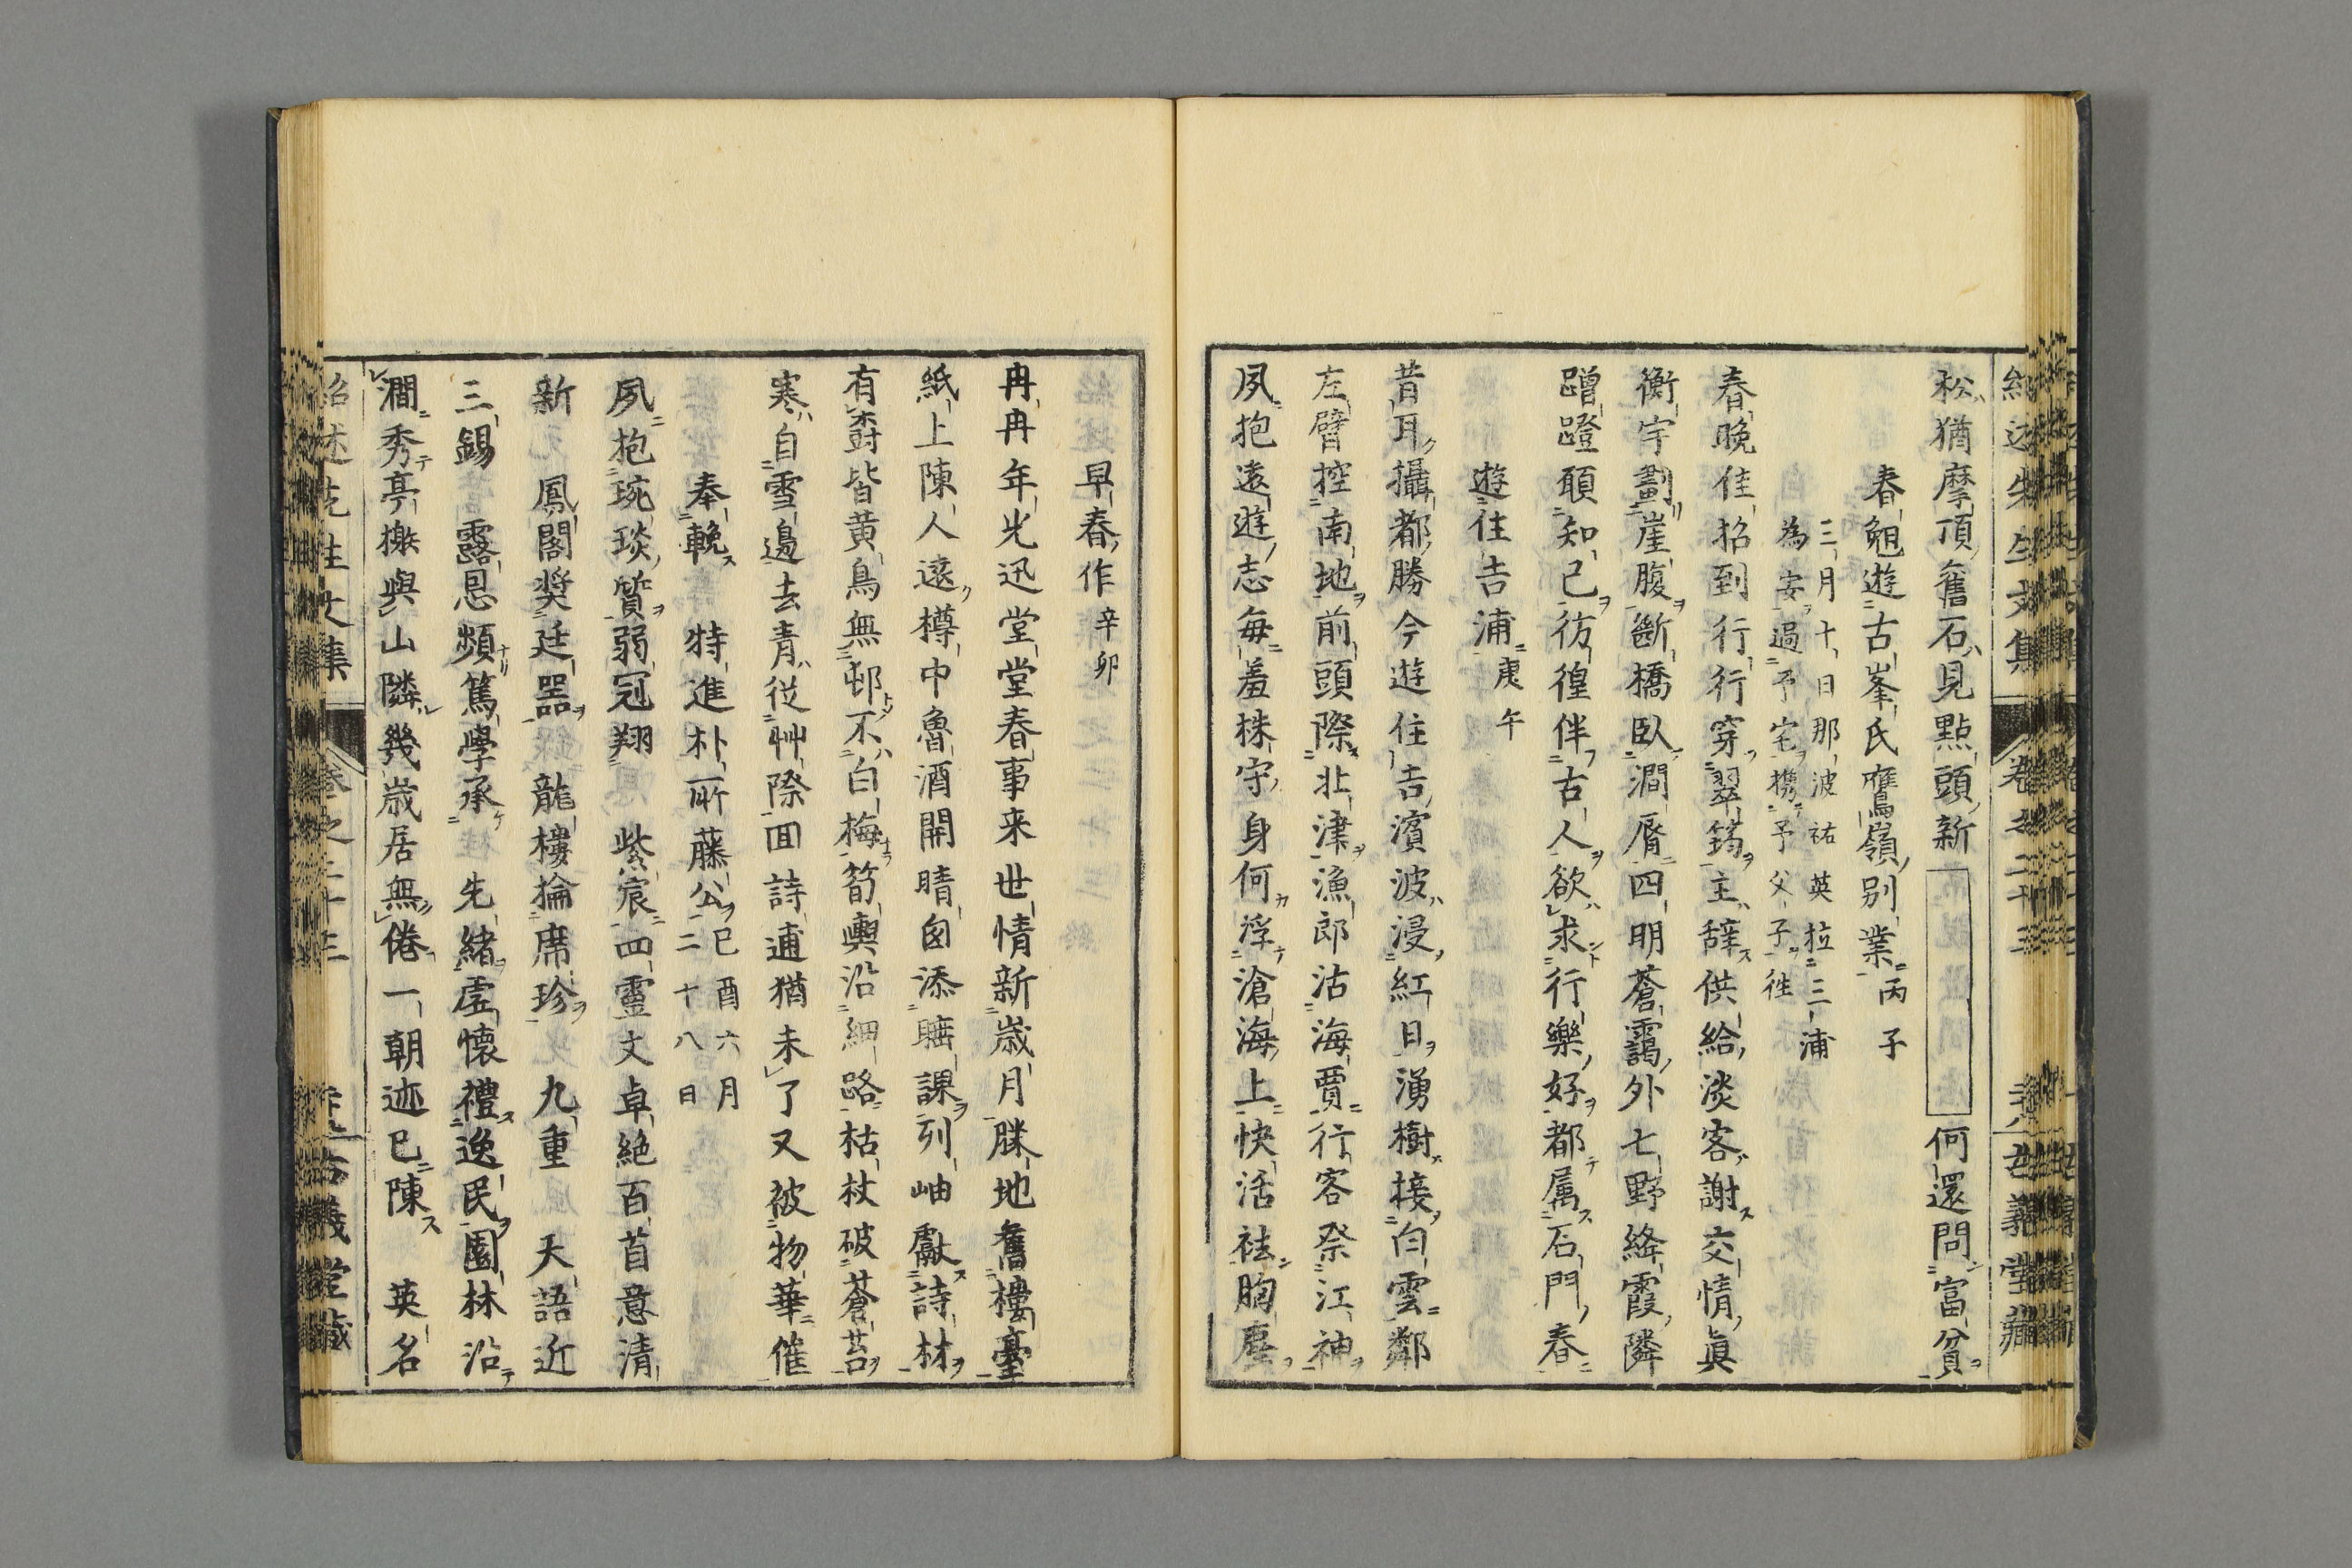 松猶摩頂舊石見點頭新何還問富貧
春晩遊古峯氏鷹嶺别業丙子
三月十日那波祐英拉三浦
為安過予宅携予父子徃
春晚佳招到行行穿翠筠主辭供給淡客謝交情眞
衡宇劃崖腹斷橋臥澗脣四明蒼靄外七野絳霞隣
蹭蹬頤知己彷徨伴古人欲求行樂好都属石門春
遊住吉浦庚午
昔耳攝都勝今遊住吉濱波浸紅日湧樹接白雲鄰
左臂控南地前頭際北津漁郎沽海賈行客祭江神
夙抱遠遊志毎羞株守身何浮滄海上快活袪胸塵
早春作辛卯
冉冉年光迅堂堂春事来世情新歳月勝地舊樓臺
紙上陳人遠樽中魯酒開晴囪添課列岫獻詩材
有皆黄鳥無邨不白梅筍輿沿細路枯杖破蒼苔
寒自雪邉去青從艸際囬詩逋猶未了又被物華催
奉輓特進朴所藤公己酉六月二十八日
夙抱琬琰質弱冠翔紫宸四靈文卓絶百首意清
新鳳閣奨廷器龍樓掄席珍九重天語近
三錫露恩頻篤學承先緒虚懷禮逸民園林沿
澗秀亭榭與山隣幾歳居無倦一朝迹已陳英名
紹述先生文集
卷之二十三
古義堂藏